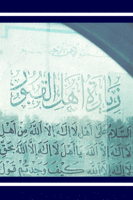 زيارة أهل القبور
السلام على أهل لا إله إلا الله من أهل
لا إله إلا الله يا أهل لا إله إلا الله بحق
لا إله إلا الله كيف وجدتم قول